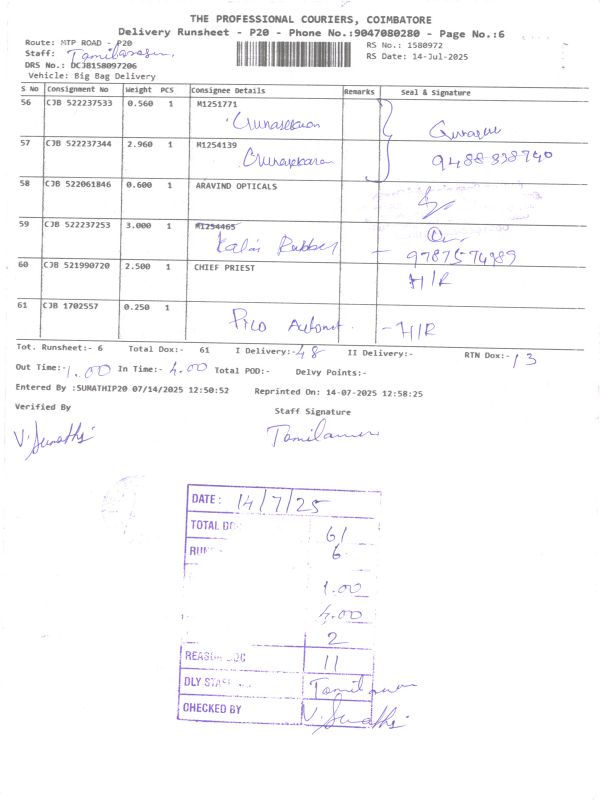 THE PROFESSIONAL COURIERS, COIMBATORE
Delivery Runsheet - P20 - Phone No.:9047080280 - Page No.:6
Route: MTP ROAD - P20
RS No.: 1580972
Staff: Tamilarasan
RS Date: 14-Jul-2025
DRS No.: DCJB158097206
Vehicle: Big Bag Delivery
S No Consignment No Weight PCS Consignee Details Remarks Seal & Signature
56 CJB 522237533 0.560 1 M1251771
Gunasekaran
57 CJB 522237344 2.960 1 M1254139
Gunasekaran 9488838740
58 CJB 522061846 0.600 1 ARAVIND OPTICALS
59 CJB 522237253 3.000 1 M1254465
Kalai Rubber
9787574989
60 CJB 521990720 2.500 1 CHIEF PRIEST H/R
61 CJB 1702557 0.250 1
Pico Automat. - H/R
Tot. Runsheet:- 6 Total Dox:- 61 I Delivery:- 48 II Delivery:- RTN Dox:- 13
Out Time:- 1.00 In Time:- 4.00 Total POD:- Delvy Points:-
Entered By :SURATHIP20 07/14/2025 12:50:52 Reprinted On: 14-07-2025 12:58:25
Verified By Staff Signature
V. Surathi Tamilarasan
DATE : 14/7/25
TOTAL 61
6
1.00
4.00
2
REASON DOC 11
DLY STAFF Tamilarasan
CHECKED BY V. Surathi